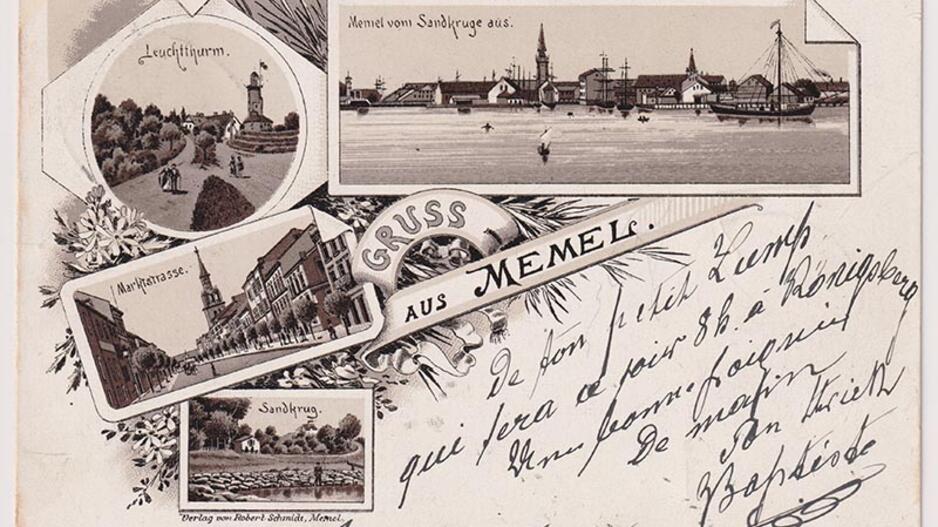 Leuchtthurm.
Memel vom Sandkruge aus.
GRUSS
AUS MEMEL.
Marktstrasse.
Sandkrug.
Verlag von Robert Schmidt, Memel.
De ton petit Lump
qui sera ce soir 8h. à Königsberg
Une bonne
De
Ton
Baptiste